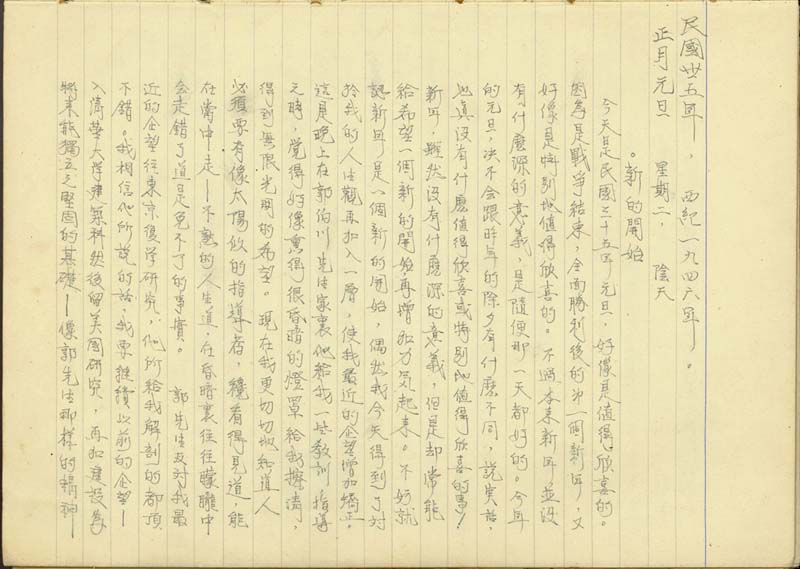 民國卅五年，西紀一九四六年。
正月元旦 星期二，陰天
。新的開始
今天是民國三十五年元旦，好像是值得欣喜的。
因為是戰爭結束，全面勝利後的第一個新年，又
好像是特別地值得欣喜的。不過本來新年，並沒
有什麼深的意義，是隨便那一天都好的。今年
的元旦，決不會跟昨年的除夕有什麼不同，說實話，
也真沒有什麼值得欣喜或特別地值得欣喜的事！
新年，雖然沒有什麼深的意義，但是却常能
給希望一個新的開始再增加力氣起來。不妨就
說新年是一個新的開始，偶然我今天得到了对
於我的人生觀再加入一層，使我最近的企望增加矯正。
這是晚上在郭伯川先生家裏他給我一些教訓指導
之時，覺得好像熏得很昏暗的燈罩給我擦清，
得到無限光明的希望。現在我更切切地知道人
必須要有像太陽似的指導者，纔看得見道，能
在當中走——不熟的人生道，在昏暗裏往往矇矓中
会走錯了道是免不了的事實。 郭先生反对我最
近的企望往東京復学研究，他所給我解剖的都頂
不錯。我相信他所說的話，我要繼續以前的企望——
入清華大学建築科然後留美國研究，再加建設為
將來能獨立之堅固的基礎——像郭先生那樣的精神——